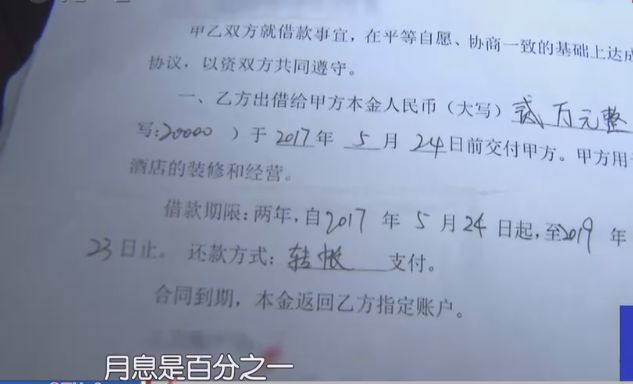 甲乙双方就借款事宜，在平等自愿、协商一致的基础上达成
协议，以资双方共同遵守。
一、乙方出借给甲方本金人民币（大写）贰万元整
写:20000 ）于 2017年 5 月 24日前交付甲方。甲方用于
酒店的装修和经营。
借款期限：两年，自2017 年 5 月 24 日起，至2019 年
23日止。 还款方式：转帐 支付。
合同到期，本金返回乙方指定账户。
月息是百分之一